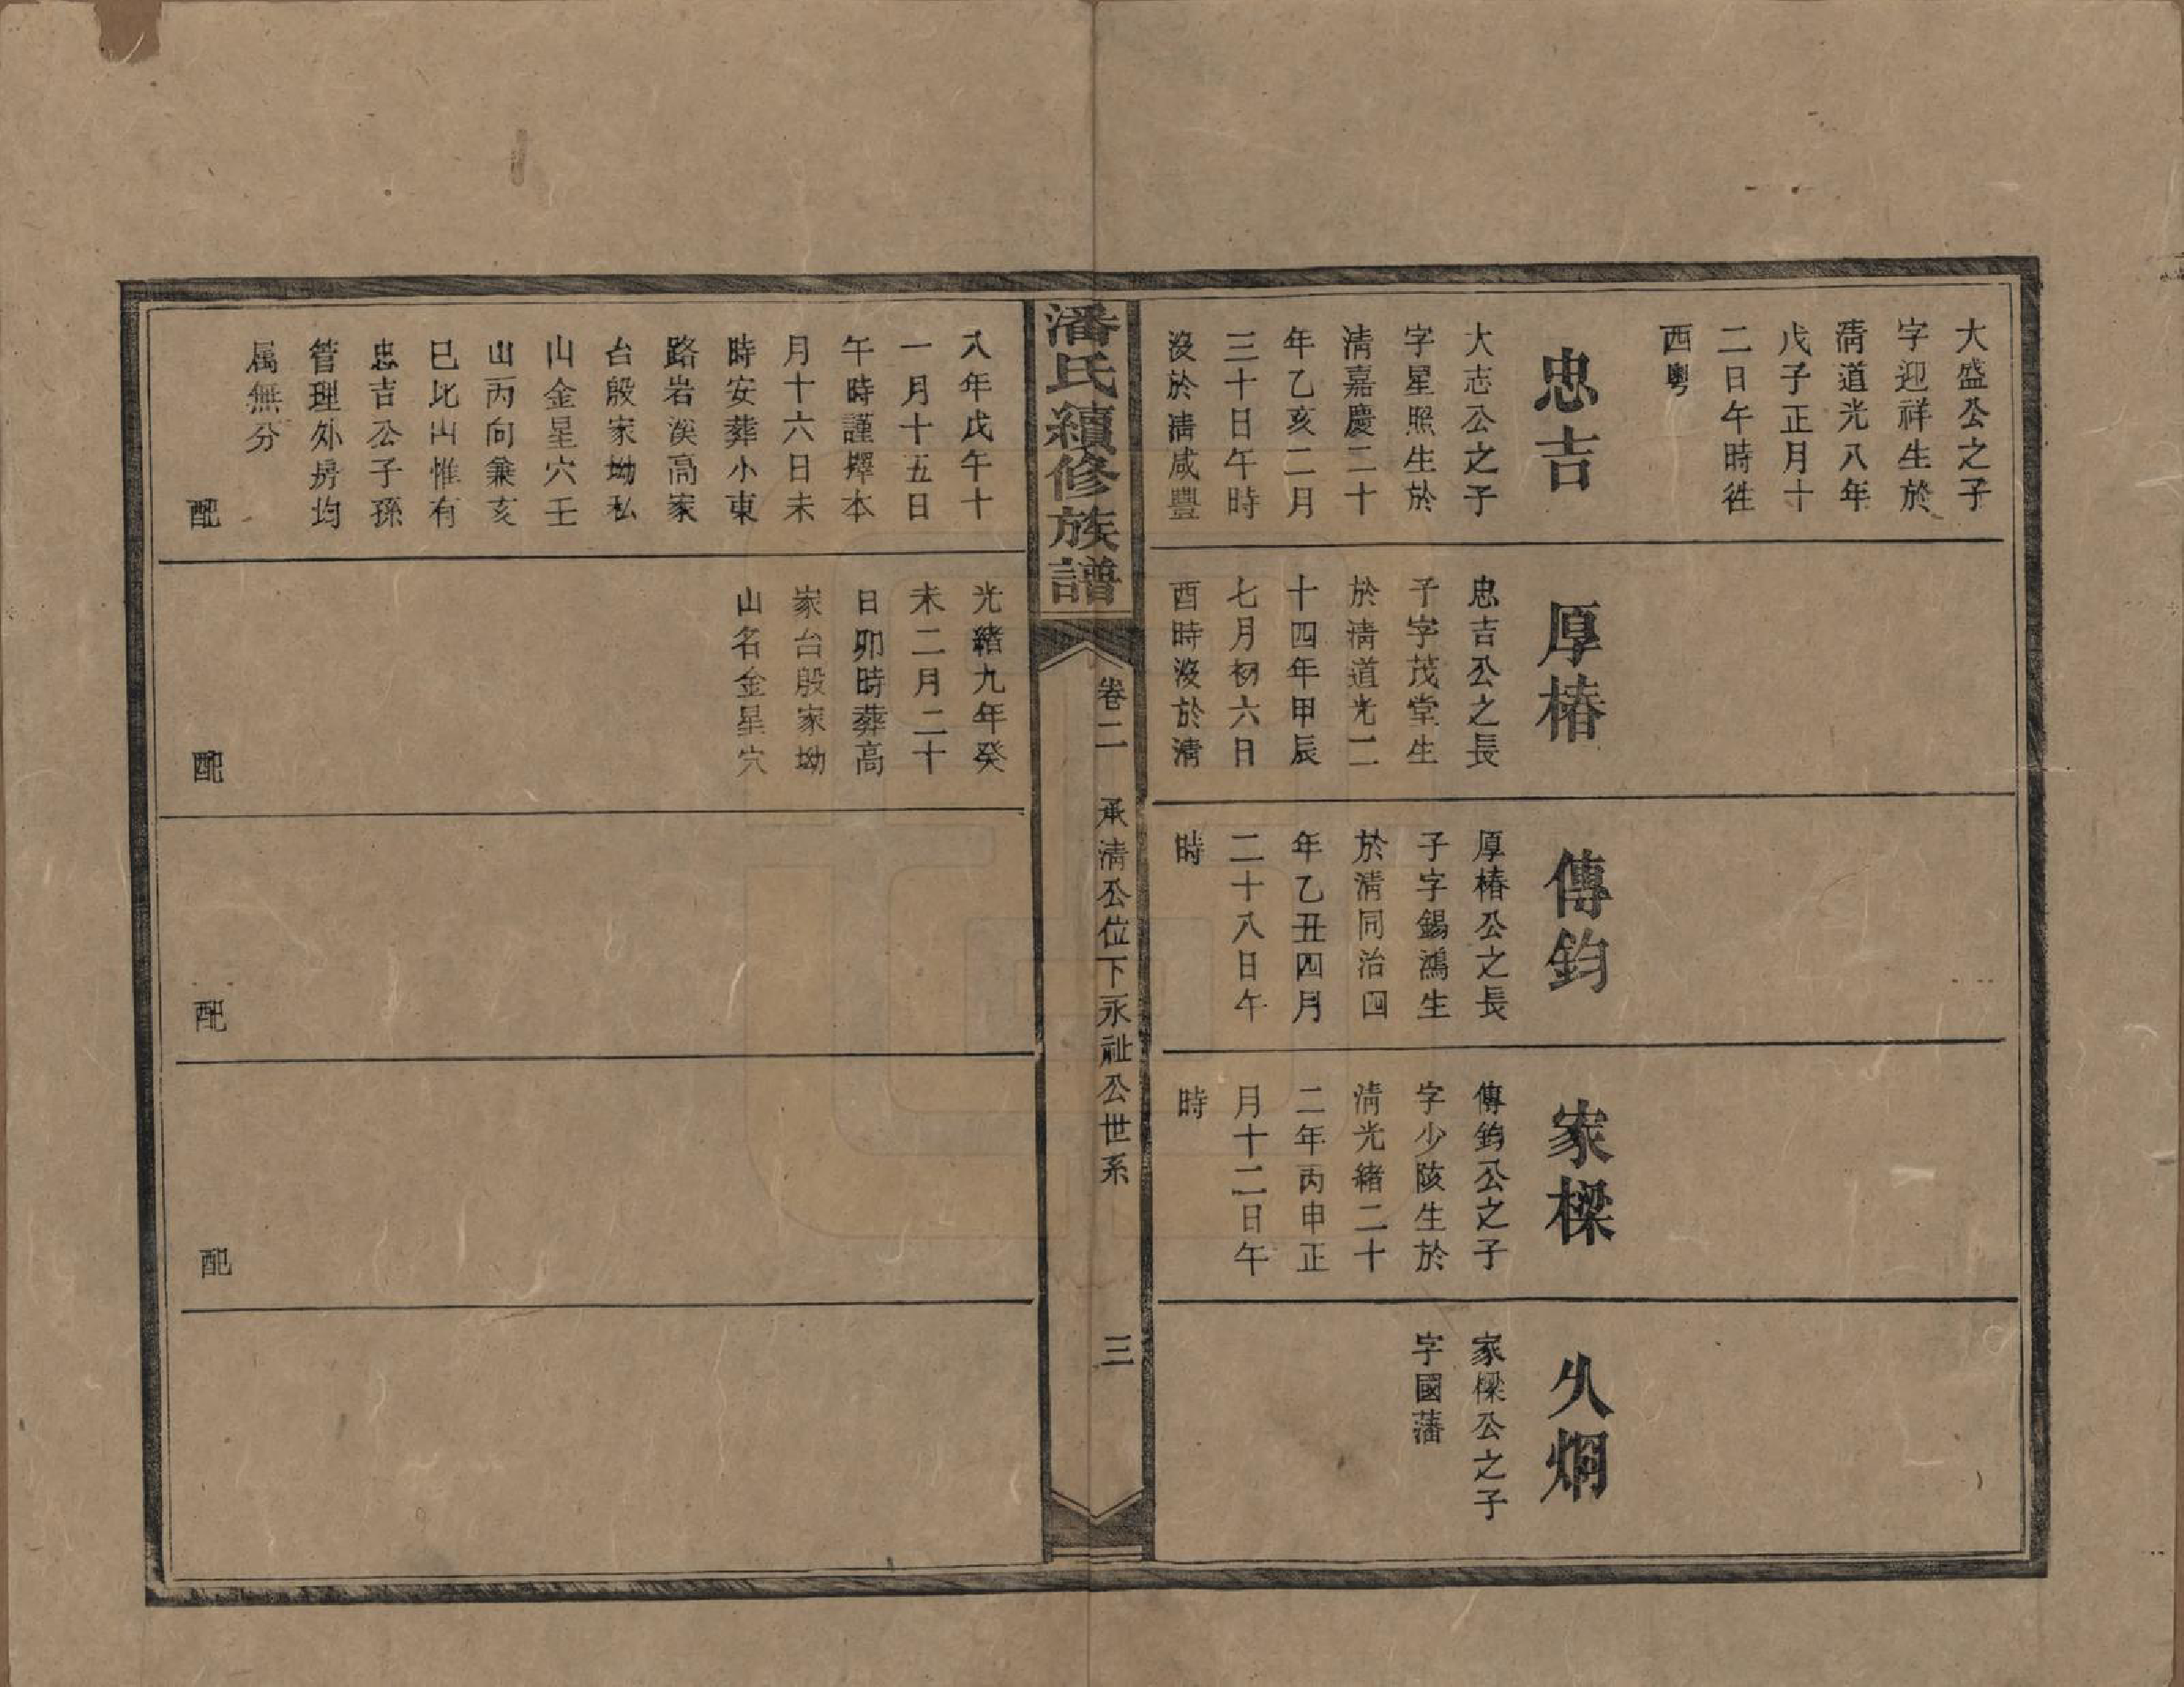 大盛公之子
字迎祥生於
清道光八年
戊子正月十
二日午時徃
西粵
忠吉
大志公之子
字星照生於
清嘉慶二十
年乙亥二月
三十日午時
沒於清咸豐
厚椿
忠吉公之長
子字茂堂生
於清道光二
十四年甲辰
七月初六日
酉時沒於清
傳鈞
厚椿公之長
子字錫鴻生
於清同治四
年乙丑四月
二十八日午
時
家樑
傳鈞公之子
字少陔生於
清光緒二十
二年丙申正
月十二日午
時
久烱
家樑公之子
字國藩
潘氏續修族譜
卷二
承清公位下永祉公世系
三
八年戊午十
一月十五日
午時謹擇本
月十六日未
時安葬小東
路岩溪高家
台殷家坳私
山金星穴壬
山丙向兼亥
巳比山惟有
忠吉公子孫
管理外房均
属無分
配
光緒九年癸
未二月二十
日卯時葬高
家台殷家坳
山名金星穴
配
配
配